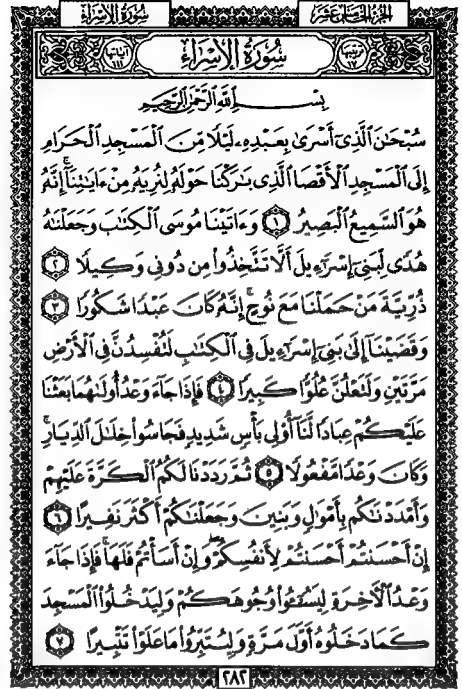 سُورَةُ الْإِسْرَاءِ الجُزْءُ الخَامِسَ عَشَرَ
آياتها ١١١ سُورَةُ الإِسْرَاءِ ترتيبها ١٧
بِسْمِ اللَّهِ الرَّحْمَٰنِ الرَّحِيمِ
سُبْحَٰنَ الَّذِىٓ أَسْرَىٰ بِعَبْدِهِۦ لَيْلًا مِّنَ الْمَسْجِدِ الْحَرَامِ
إِلَى الْمَسْجِدِ الْأَقْصَا الَّذِى بَٰرَكْنَا حَوْلَهُۥ لِنُرِيَهُۥ مِنْ ءَايَٰتِنَآ ۚ إِنَّهُۥ
هُوَ السَّمِيعُ الْبَصِيرُ ١ وَءَاتَيْنَا مُوسَى الْكِتَٰبَ وَجَعَلْنَٰهُ
هُدًى لِّبَنِىٓ إِسْرَٰٓءِيلَ أَلَّا تَتَّخِذُوا۟ مِن دُونِى وَكِيلًا ٢
ذُرِّيَّةَ مَنْ حَمَلْنَا مَعَ نُوحٍ ۚ إِنَّهُۥ كَانَ عَبْدًا شَكُورًا ٣
وَقَضَيْنَآ إِلَىٰ بَنِىٓ إِسْرَٰٓءِيلَ فِى الْكِتَٰبِ لَتُفْسِدُنَّ فِى الْأَرْضِ
مَرَّتَيْنِ وَلَتَعْلُنَّ عُلُوًّا كَبِيرًا ٤ فَإِذَا جَآءَ وَعْدُ أُولَىٰهُمَا بَعَثْنَا
عَلَيْكُمْ عِبَادًا لَّنَآ أُو۟لِى بَأْسٍ شَدِيدٍ فَجَاسُوا۟ خِلَٰلَ الدِّيَارِ ۚ
وَكَانَ وَعْدًا مَّفْعُولًا ٥ ثُمَّ رَدَدْنَا لَكُمُ الْكَرَّةَ عَلَيْهِمْ
وَأَمْدَدْنَٰكُم بِأَمْوَٰلٍ وَبَنِينَ وَجَعَلْنَٰكُمْ أَكْثَرَ نَفِيرًا ٦
إِنْ أَحْسَنتُمْ أَحْسَنتُمْ لِأَنفُسِكُمْ ۖ وَإِنْ أَسَأْتُمْ فَلَهَا ۚ فَإِذَا جَآءَ
وَعْدُ الْءَاخِرَةِ لِيَسُۥٓـُٔوا۟ وُجُوهَكُمْ وَلِيَدْخُلُوا۟ الْمَسْجِدَ
كَمَا دَخَلُوهُ أَوَّلَ مَرَّةٍ وَلِيُتَبِّرُوا۟ مَا عَلَوْا۟ تَتْبِيرًا ٧
٢٨٢